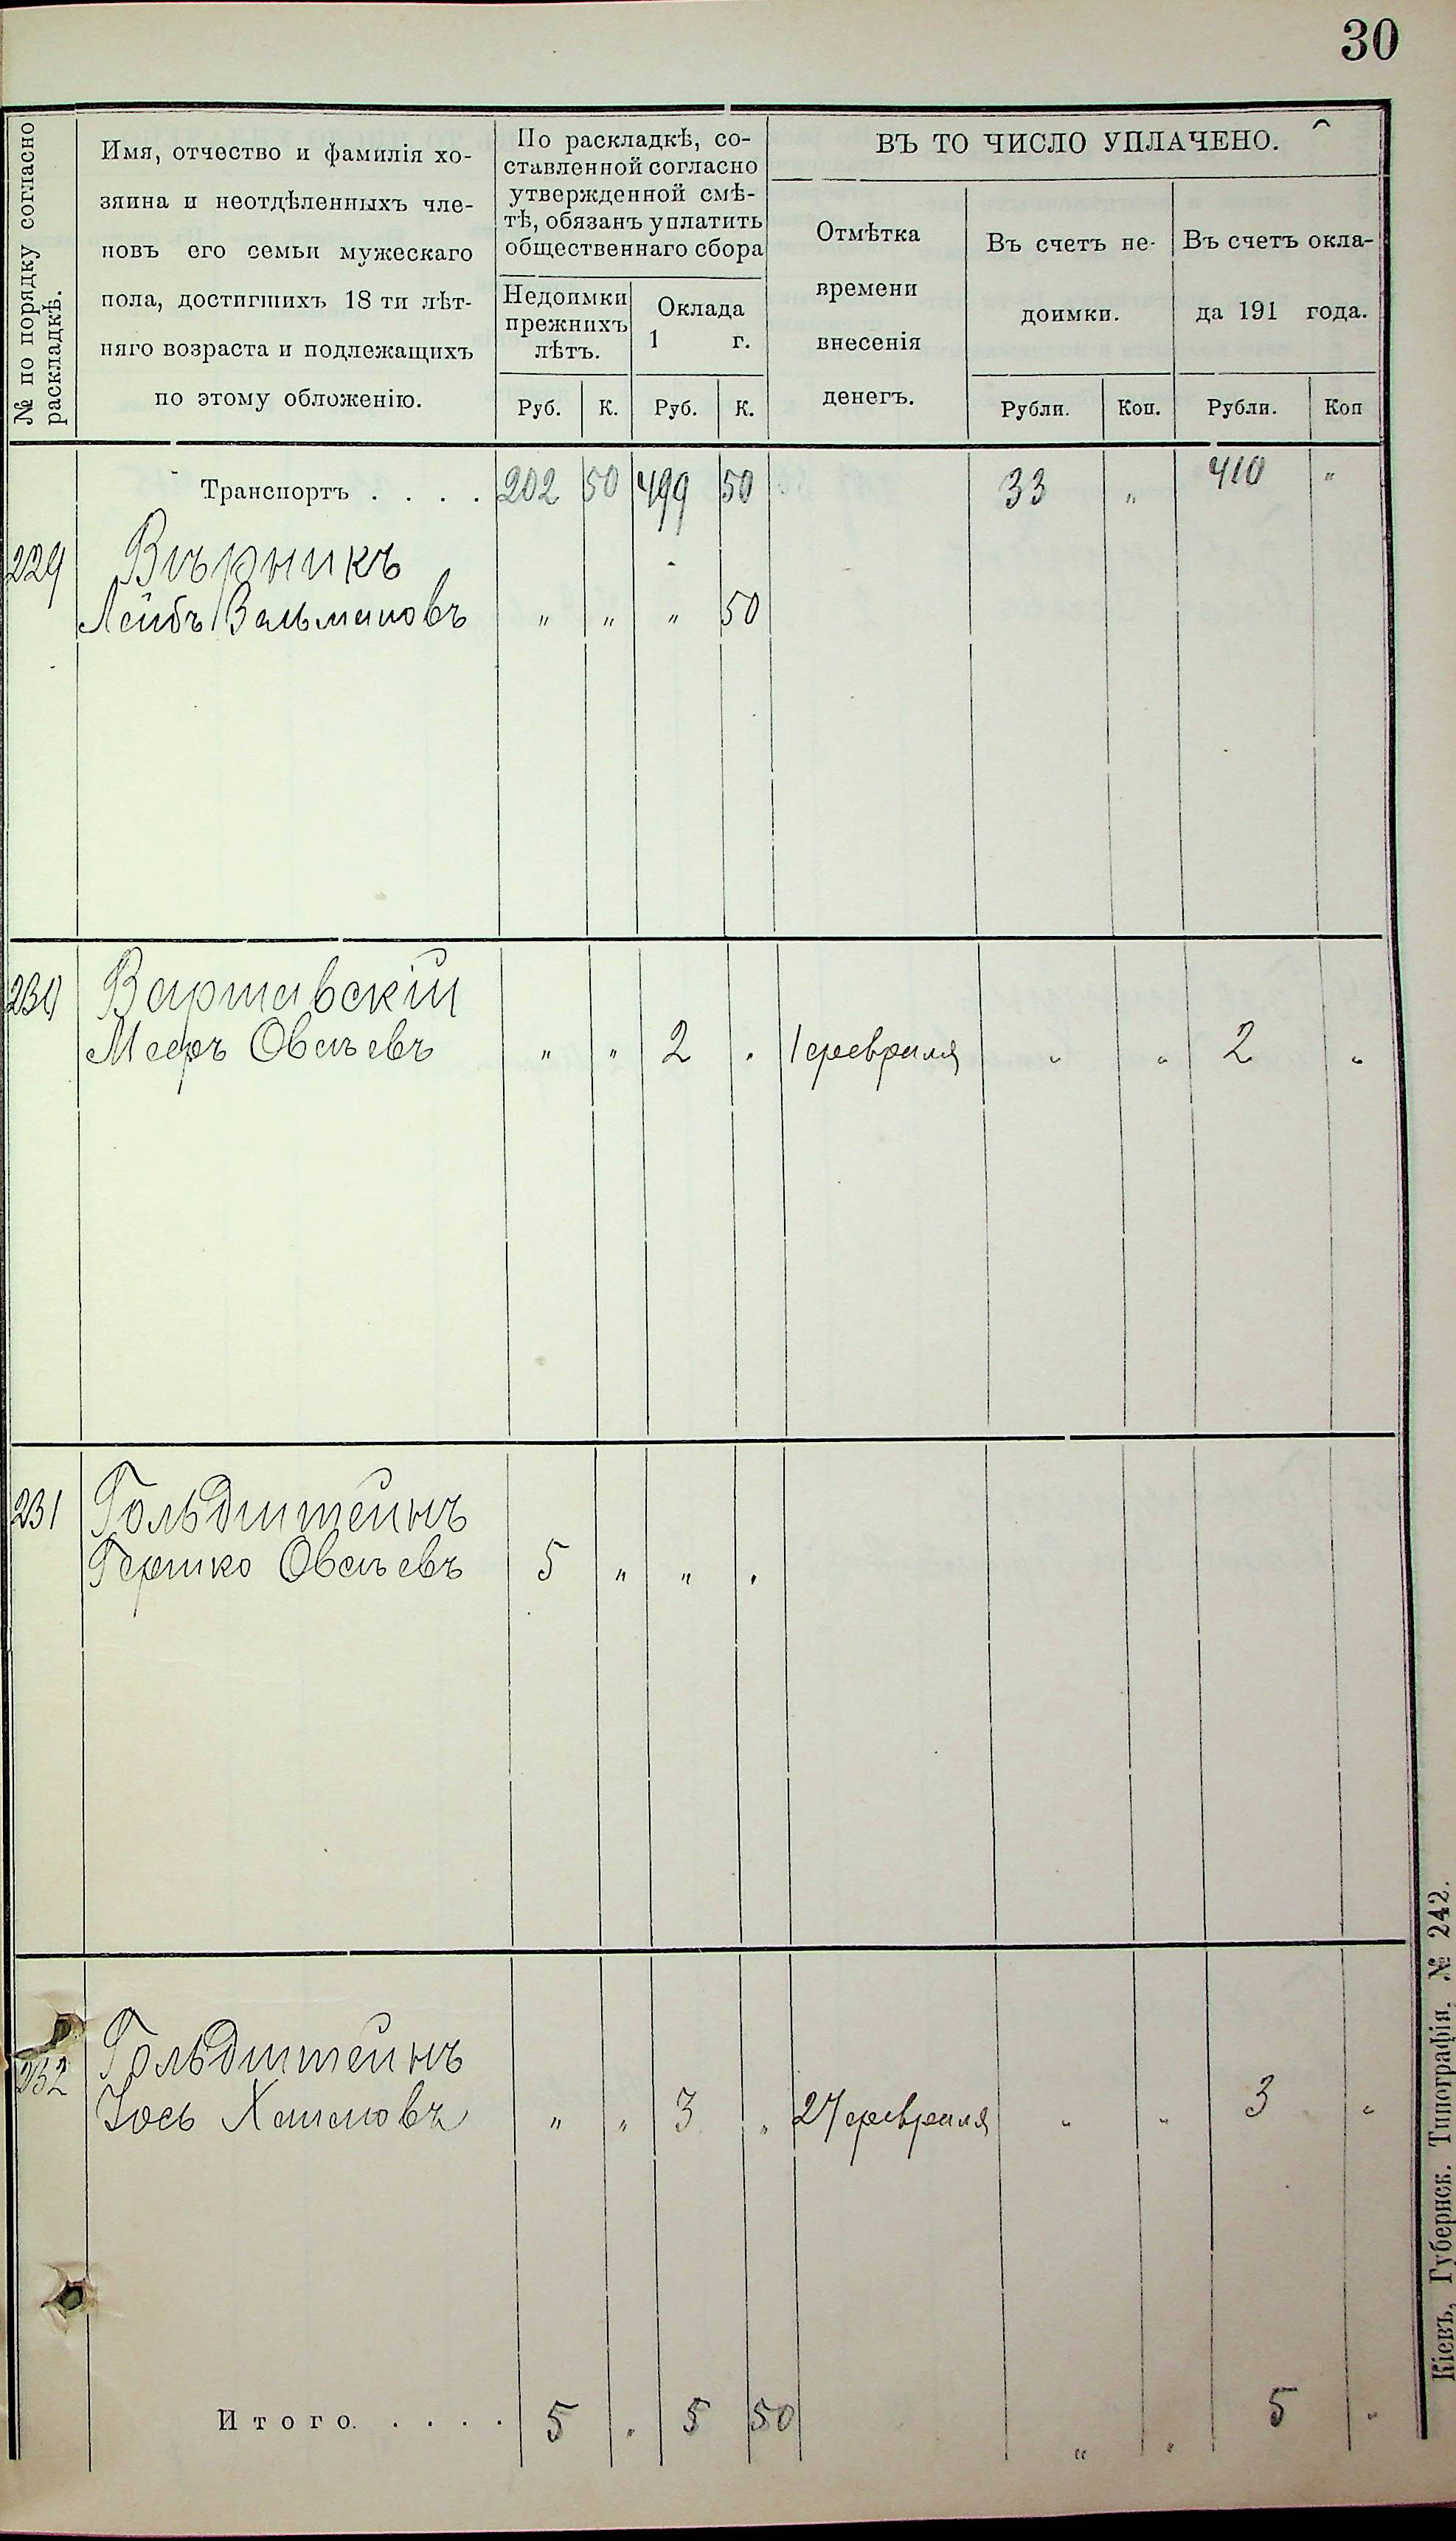 30
№ по порядку согласно
раскладкѣ.
Имя, отчество и фамилія хо-
зяина и неотдѣленныхъ чле-
новъ его семьи мужескаго
пола, достигшихъ 18 ти лѣт-
няго возраста и подлежащихъ
по этому обложенію.
По раскладкѣ, со-
ставленной согласно
утвержденной смѣ-
тѣ, обязанъ уплатить
общественнаго сбора
Недоимки
прежнихъ
лѣтъ.
Оклада
1 г.
Руб. К. Руб. К.
ВЪ ТО ЧИСЛО УПЛАЧЕНО.
Отмѣтка
времени
внесенія
денегъ.
Въ счетъ не-
доимки.
Въ счетъ окла-
да 191 года.
Рубли. Коп. Рубли. Коп
Транспортъ . . . . 202 50 499 50 33 " 410 "
229 Вѣрникъ
Лейбъ Зельмановъ " " " 50
230 Варшавскій
Мееръ Овсѣевъ " " 2 " 1 февраля " " 2 "
231 Гольдштейнъ
Гершко Овсѣевъ 5 " " "
232 Гольдштейнъ
Іось Хаимовъ " " 3 " 27 февраля " " 3 "
Итого. . . . . 5 " 5 50 " " 5 "
Кіевъ, Губернск. Типографія. № 242.